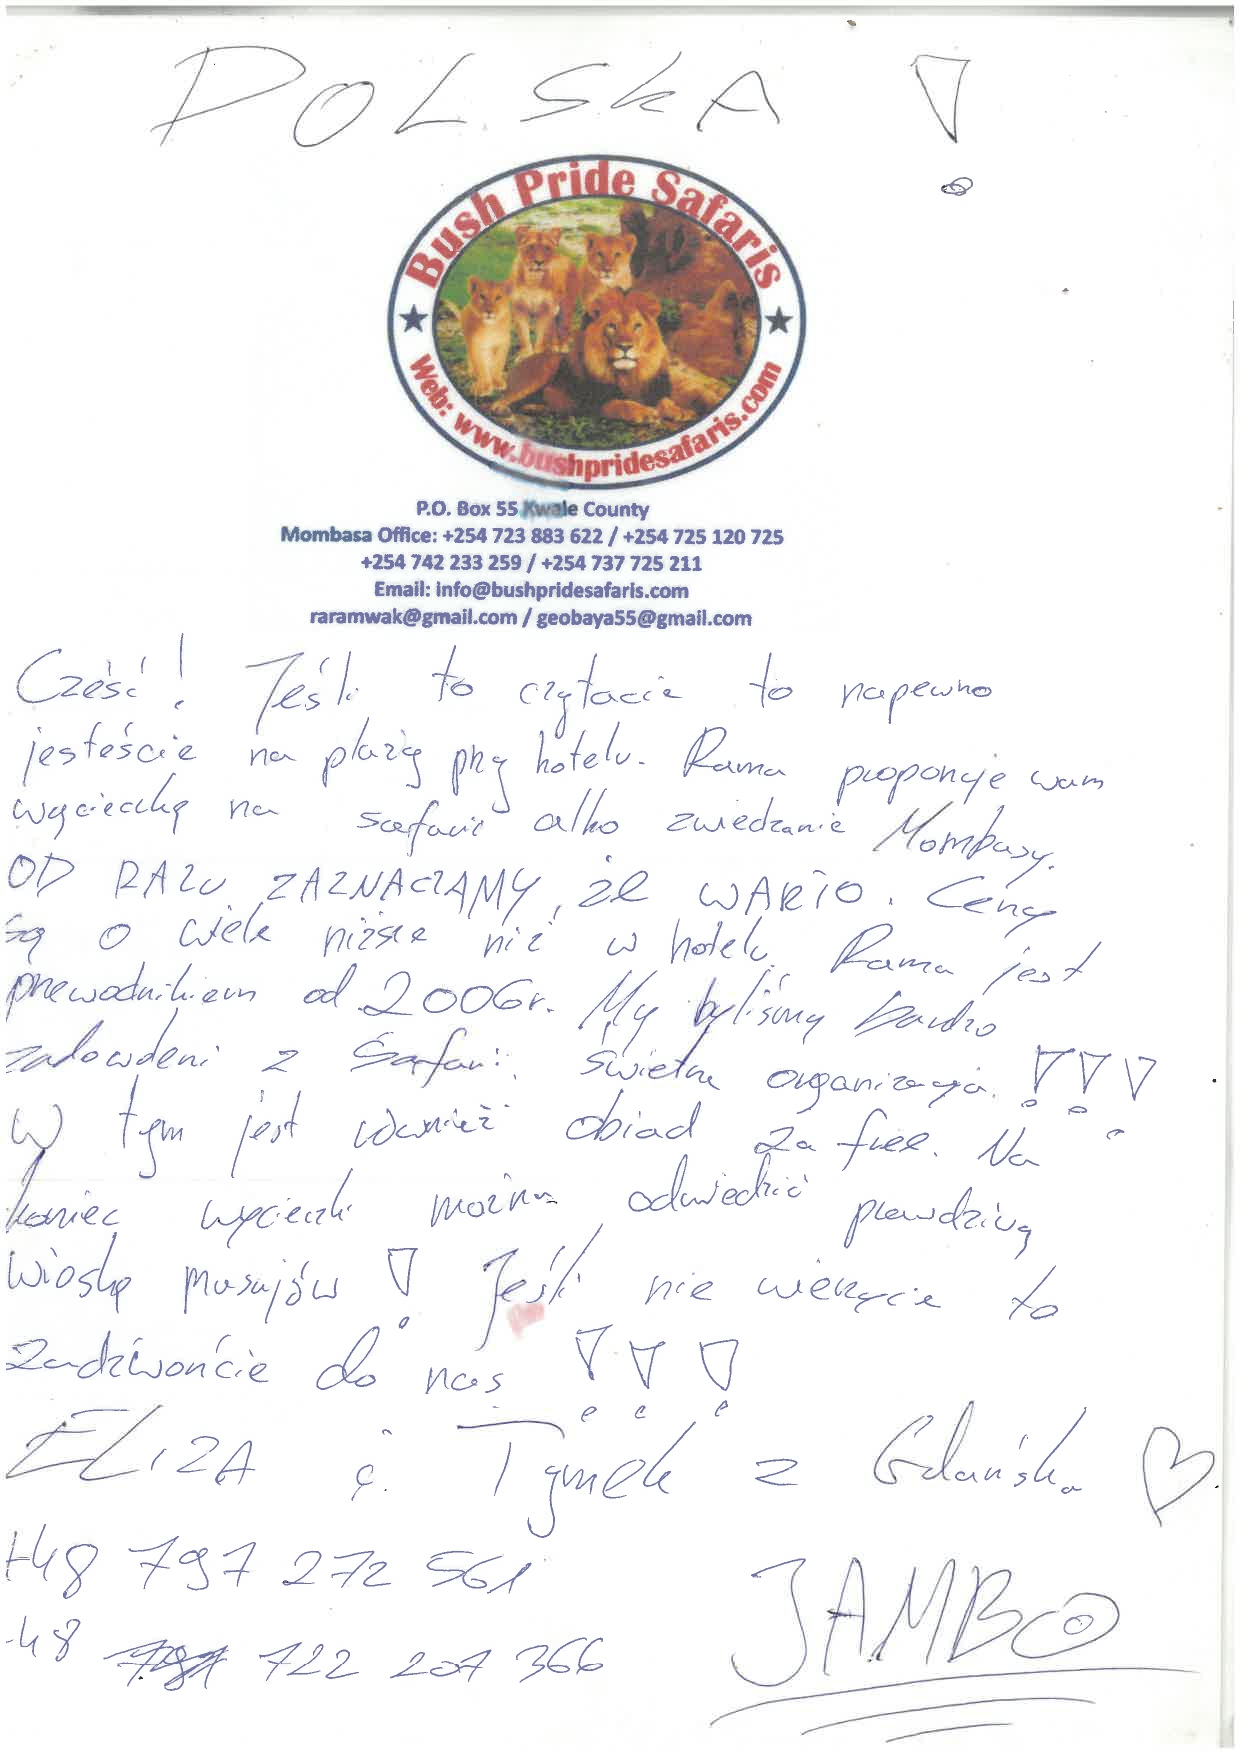 POLSKA !
Bush Pride Safaris
Web: www.bushpridesafaris.com
P.O. Box 55 Kwale County
Mombasa Office: +254 723 883 622 / +254 725 120 725
+254 742 233 259 / +254 737 725 211
Email: info@bushpridesafaris.com
raramwak@gmail.com / geobaya55@gmail.com
Cześć! Jeśli to czytacie to napewno
jesteście na plaży przy hotelu. Rama proponuje wam
wycieczkę na safari albo zwiedzanie Mombasy.
OD RAZU ZAZNACZAMY, że WARTO. Ceny
są o wiele niższe niż w hotelu. Rama jest
przewodnikiem od 2006r. My byliśmy bardzo
zadowoleni z Safari. Świetna organizacja. !!!
W tym jest również obiad za free. Na
koniec wycieczki można odwiedzić prawdziwą
wioskę masajów ! Jeśli nie wierzycie to
zadzwońcie do nas !!!
ELIZA i Tymek z Gdańska ♡
+48 797 272 561
+48 722 207 366
JAMBO